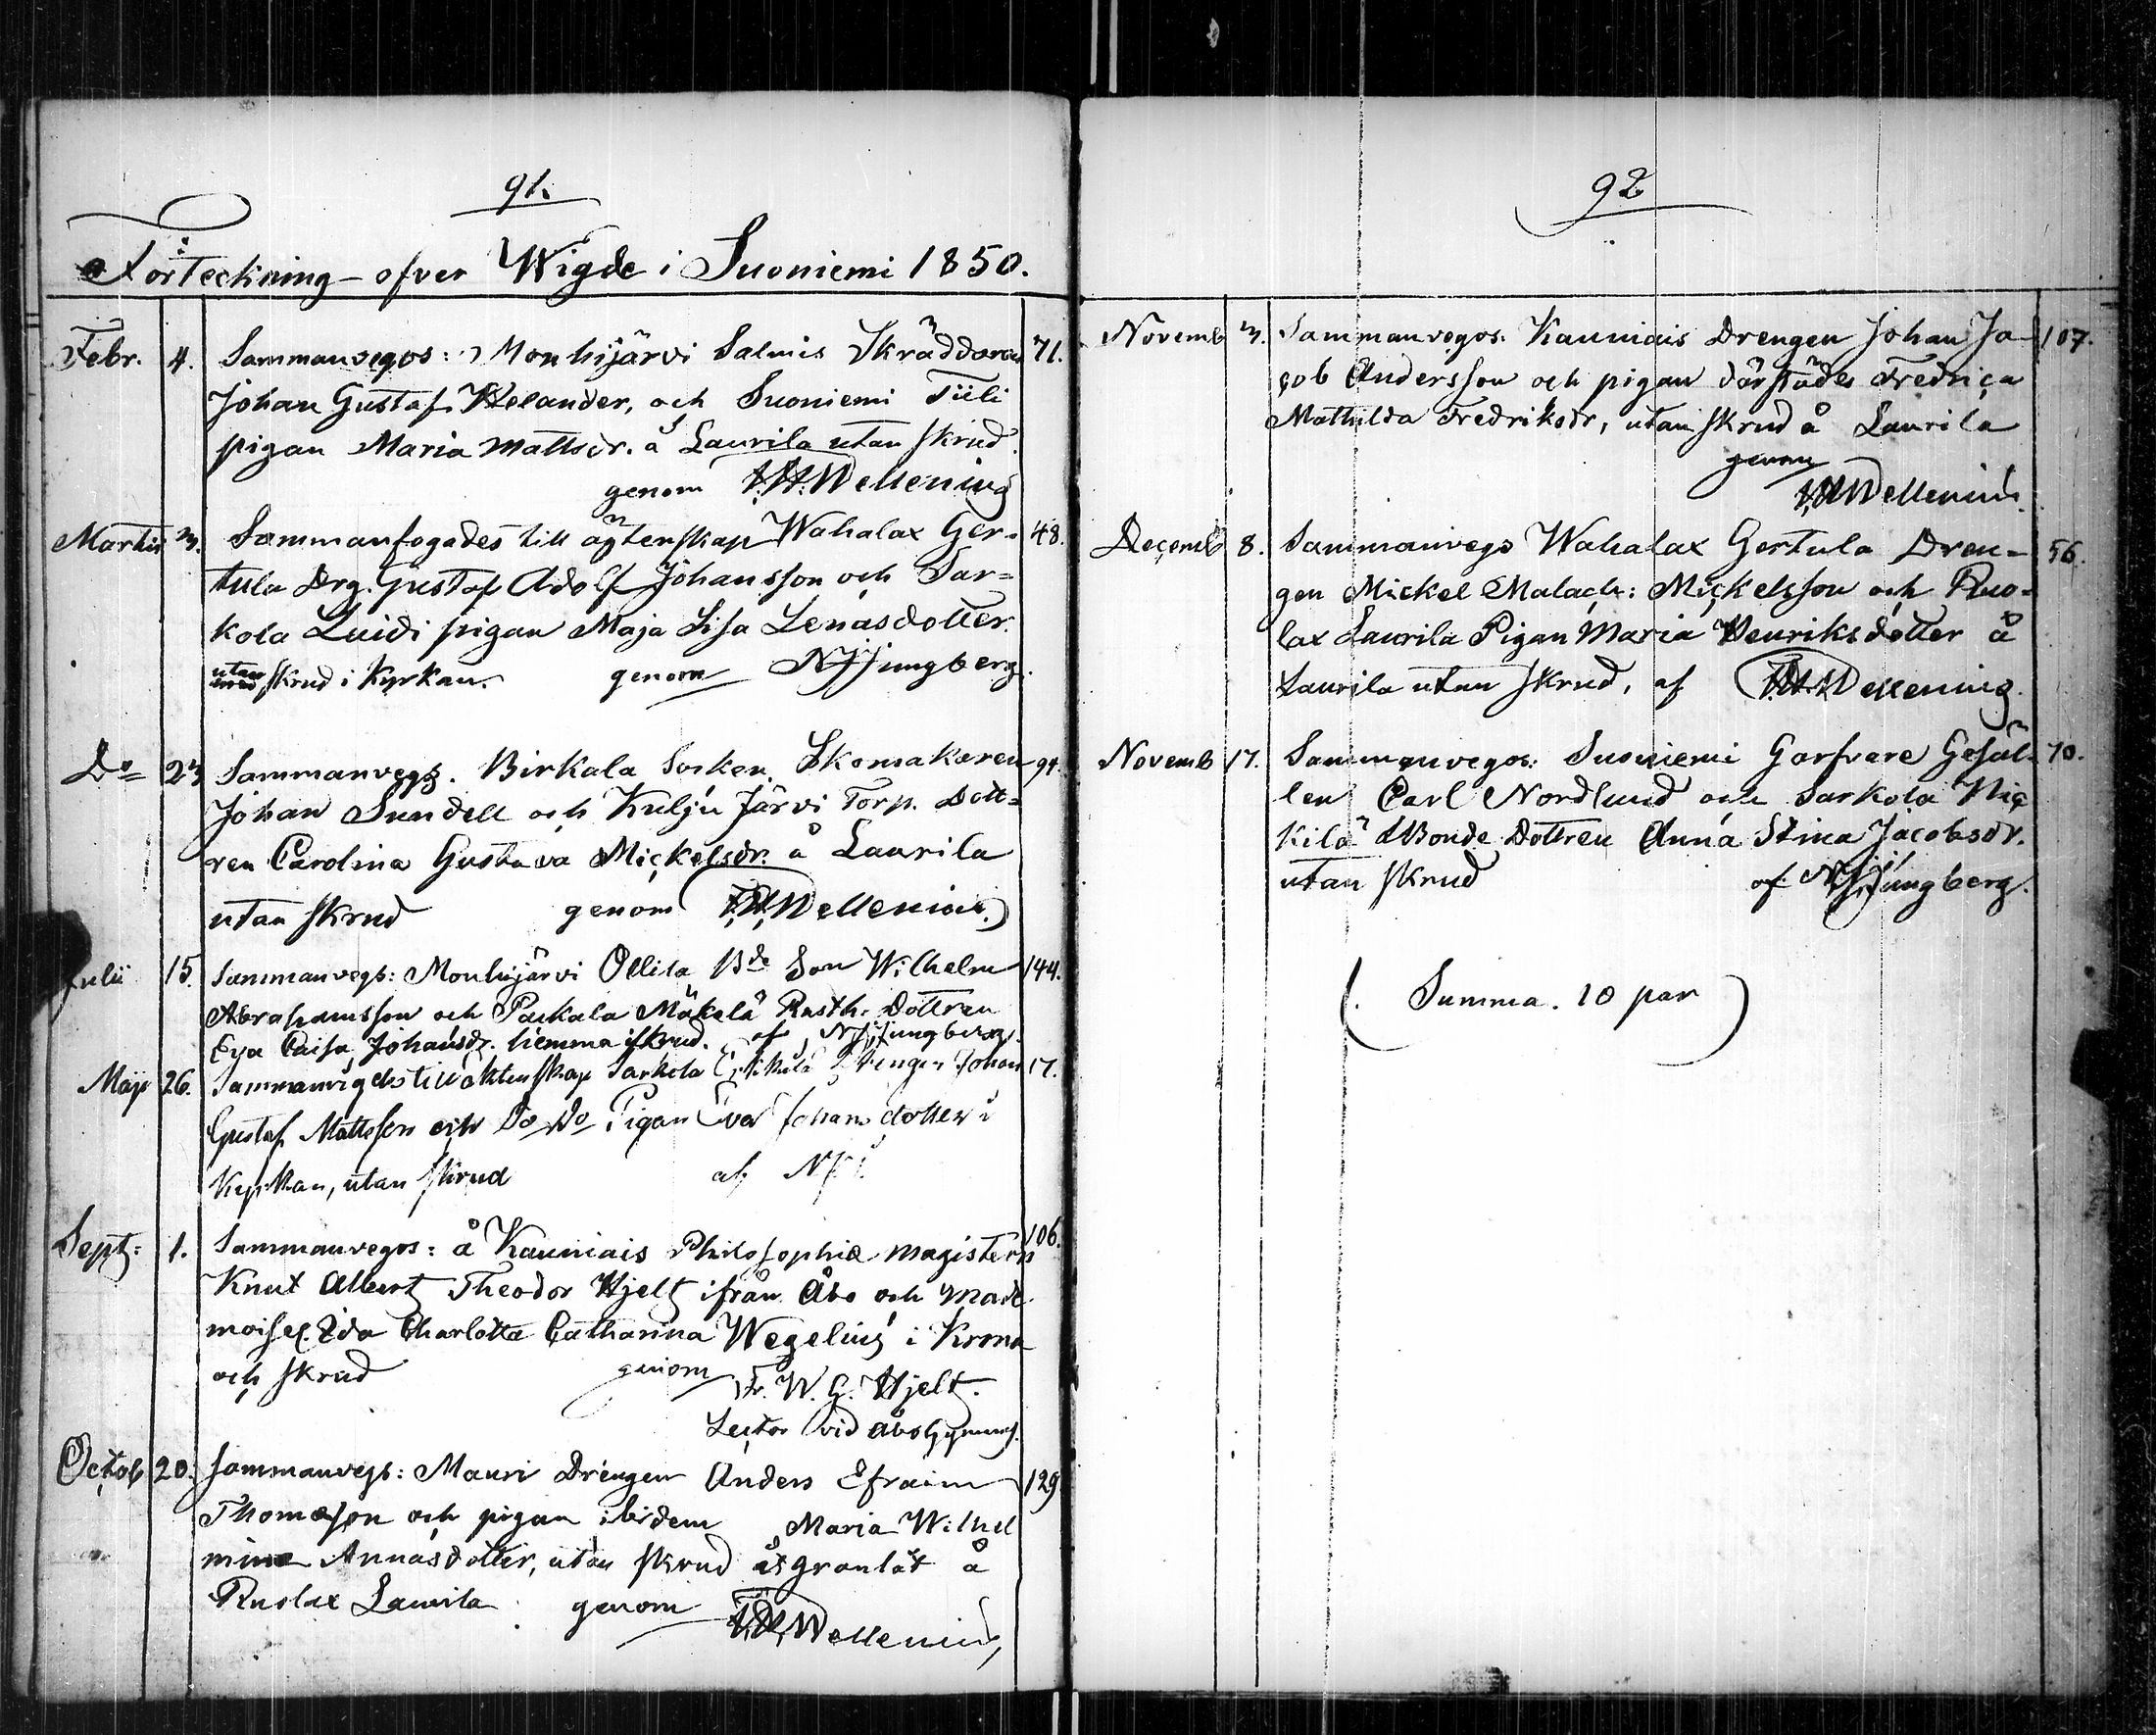 91.
Förteckning öfver Wigde i Suoniemi 1850.
Febr. 4. Sammanvegos: Mouhijärvi Salmis Skräddaren 71.
Johan Gustaf Helander, och Suoniemi Tiili
pigan Maria Mattsdr. å Laurila utan skrud.
genom Wellenius
Martii 3. Sammanfogades till ägtenskap Wahalax Ger= 48.
tula Drg. Gustaf Adolf Johansson och Sar=
kola Luidi pigan Maja Lisa Lenasdotter.
utan skrud i Kyrkan. genom Ljungberg.
Do 23 Sammanvegs. Birkala Socken Skomakaren 94.
Johan Sundell och Kulju Järvi Torp. Dott=
ren Carolina Gustava Mickelsdr. å Laurila
utan skrud genom Wellenius
Julii 15. Sammanvegs: Mouhijärvi Ollila Bde Son Wilhelm 144.
Abrahamsson och Pakkala Mäkelä Rusth. Dottren
Eva Caisa Johansdr. hemma i skrud. af Ljungberg.
Maji 26. Sammanvigdes till äktenskap Sarkola Drengen Johan 17.
Gustaf Mattsson och Do Do Pigan Eva Johansdotter i
Kyrkan, utan skrud af
Sept: 1. Sammanvegos: å Kauniais Philosophiæ magistern 106.
Knut Albert Theodor Hjelt ifrån Åbo och Made
moisel. Ida Charlotta Catharina Wegelius i Krona
och skrud genom Fr. W. G. Hjelt.
Lector vid Åbo Gymnas.
Octob 20. Sammanvegs: Mauri Drengen Anders Efraim 129
Thomasson och pigan ibidem Maria Wilhel
mina Annasdotter, utan skrud å
Ruolax Laurila genom Wellenius
92
Novemb 3. Sammanvegos. Kauniais Drengen Johan Ja- 107.
cob Andersson och pigan därstädes Fredrica
Mathilda Fredriksdr, utan skrud å Laurila
genom
Wellenius.
Decemb 8. Sammanvegs Wahalax Gertula Dren- 56.
gen Mickel Malach: Mickelsson och Ruo-
lax Laurila Pigan Maria Henriksdotter å
Laurila utan skrud, af Wellenius.
Novemb 17. Sammanvegos: Suoniemi Garfvare Gesäl- 70.
len Carl Nordlund och Sarkola Nic
kilä Bonde Dottren Anna Stina Jacobsdr.
utan skrud af Ljungberg.
(. Summa. 10 par )